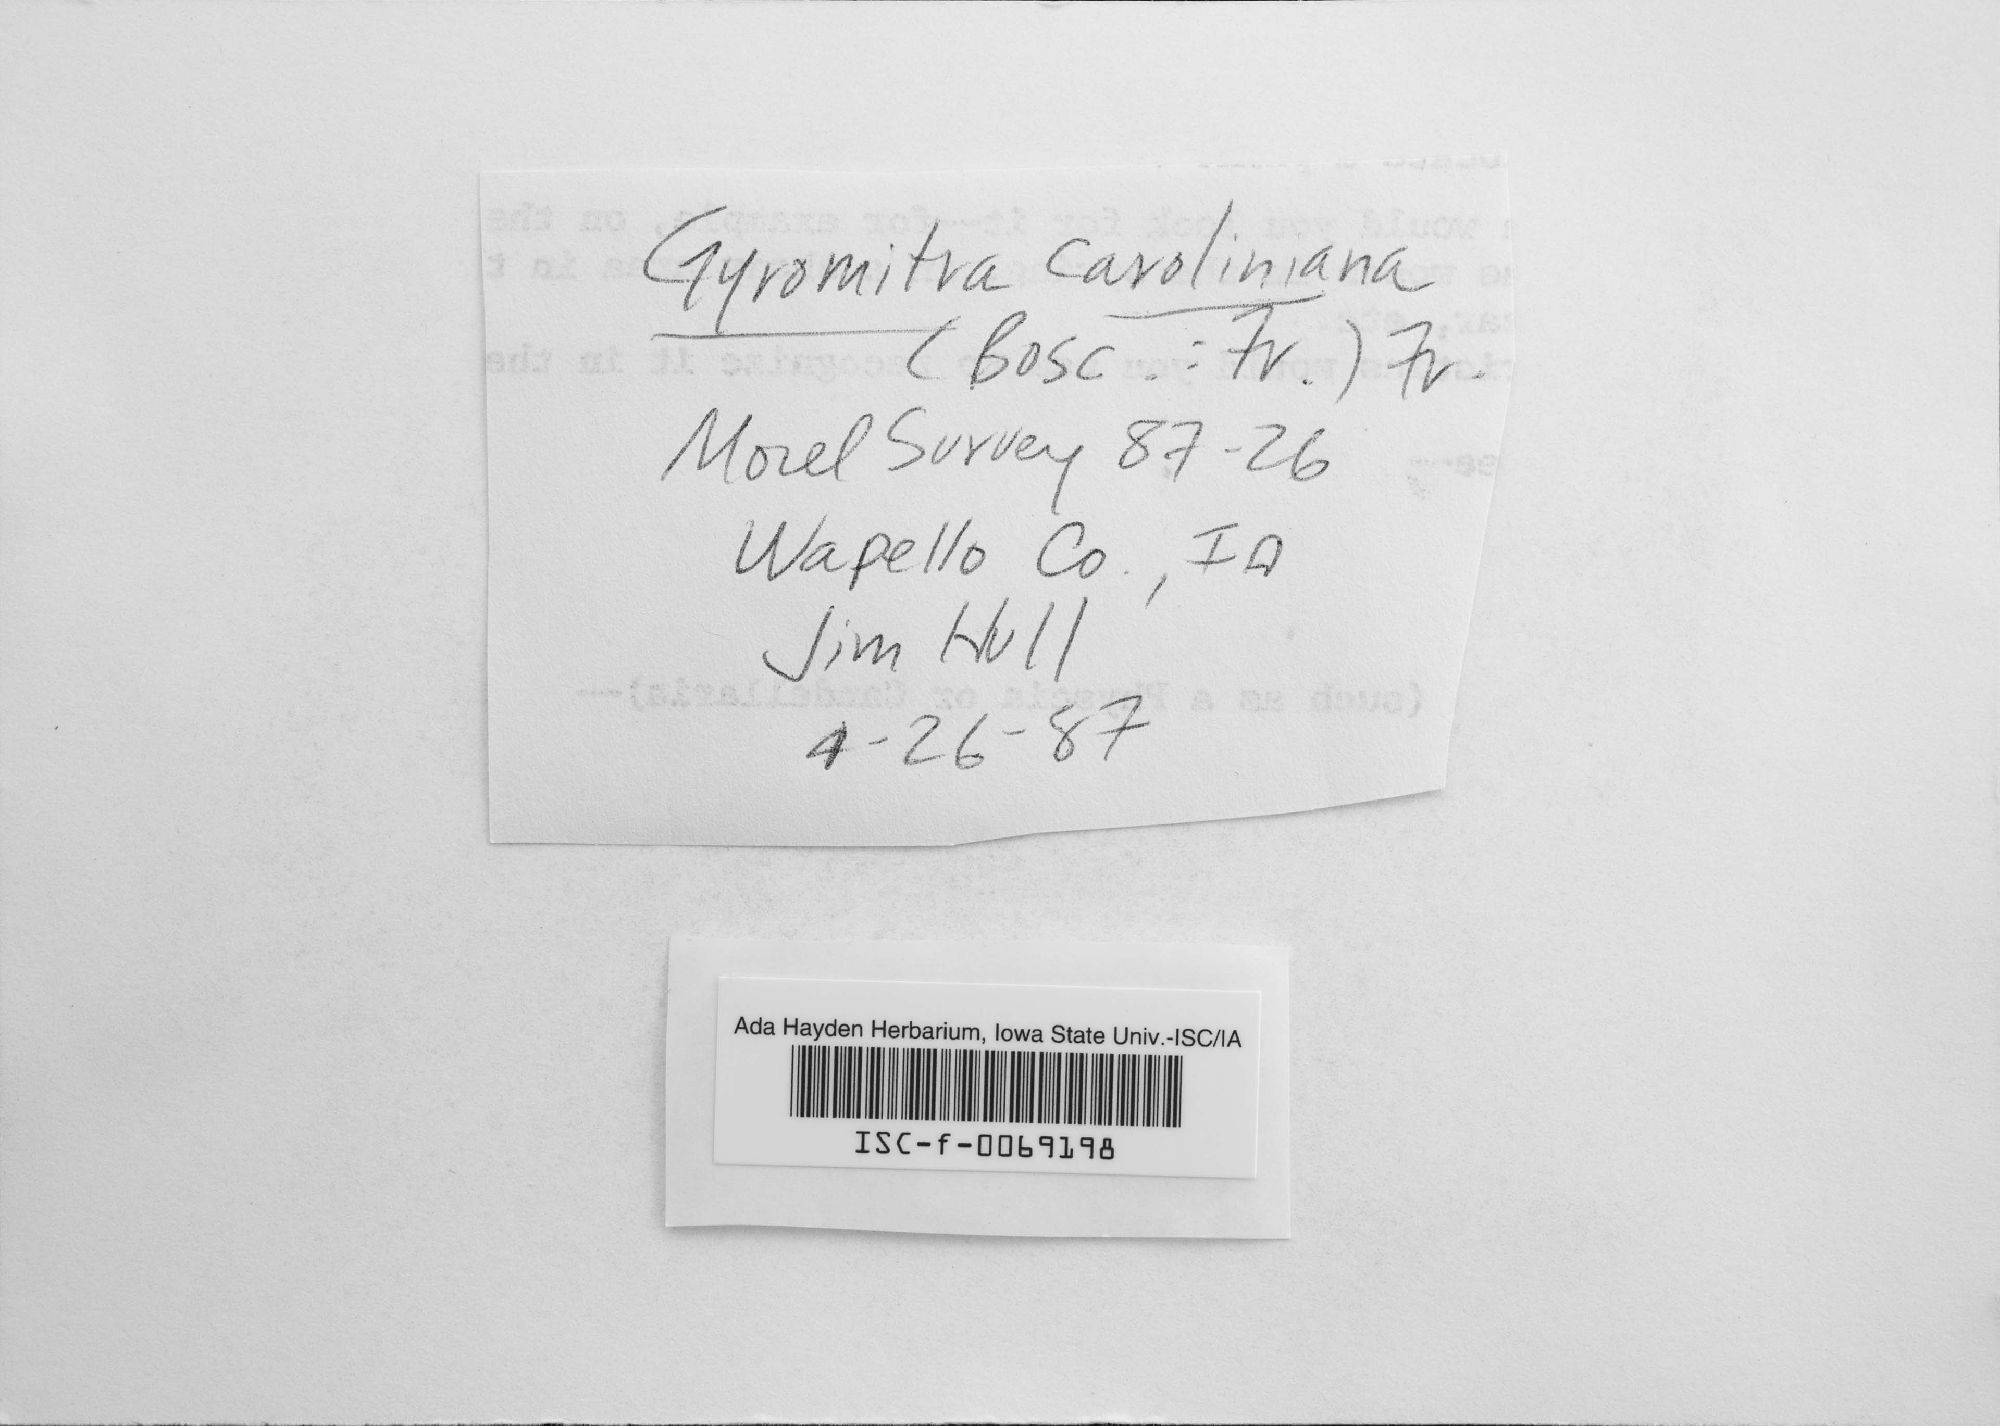 Gyromitra caroliniana
(Bosc.:Fr.) Fr.
Morel Survey 87-26
Wapello Co., IA
Jim Hull
4-26-87
Ada Hayden Herbarium, Iowa State Univ.-ISC/IA
ISC-f-0069198